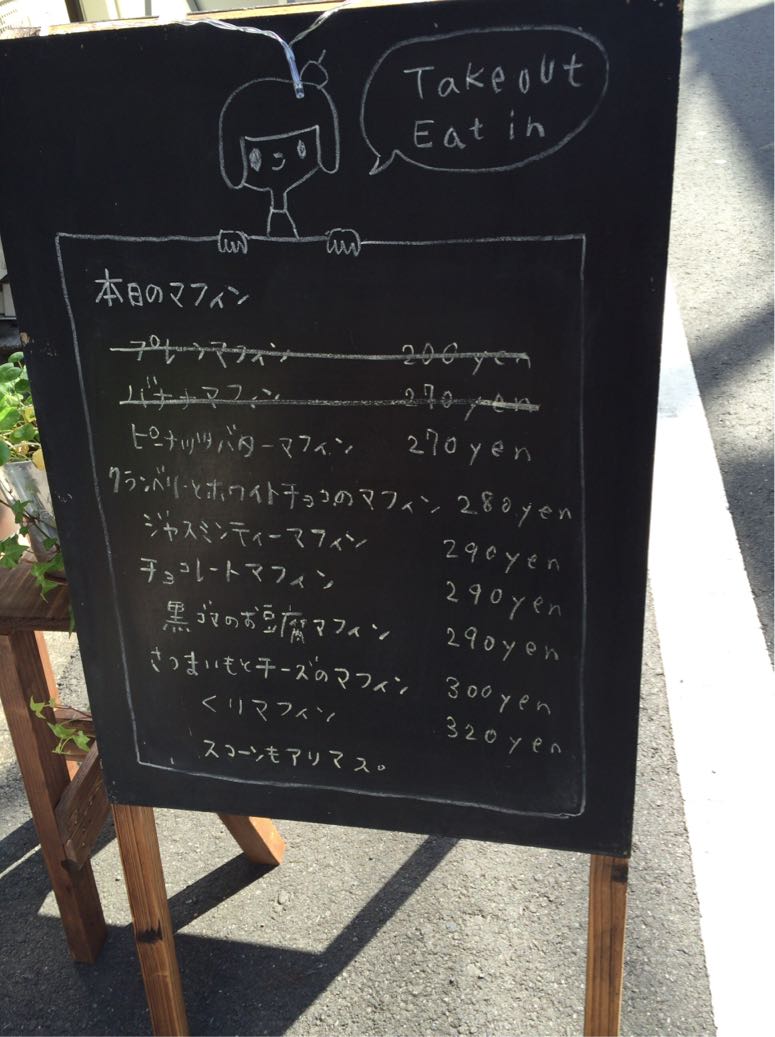 Takeout
Eat in
本日のマフィン
プレーンマフィン 200yen
バナナマフィン 270yen
ピーナッツバターマフィン 270yen
クランベリーとホワイトチョコのマフィン 280yen
ジャスミンティーマフィン 290yen
チョコレートマフィン 290yen
黒ゴマのお豆腐マフィン 290yen
さつまいもとチーズのマフィン 300yen
くりマフィン 320yen
スコーンもアリマス。